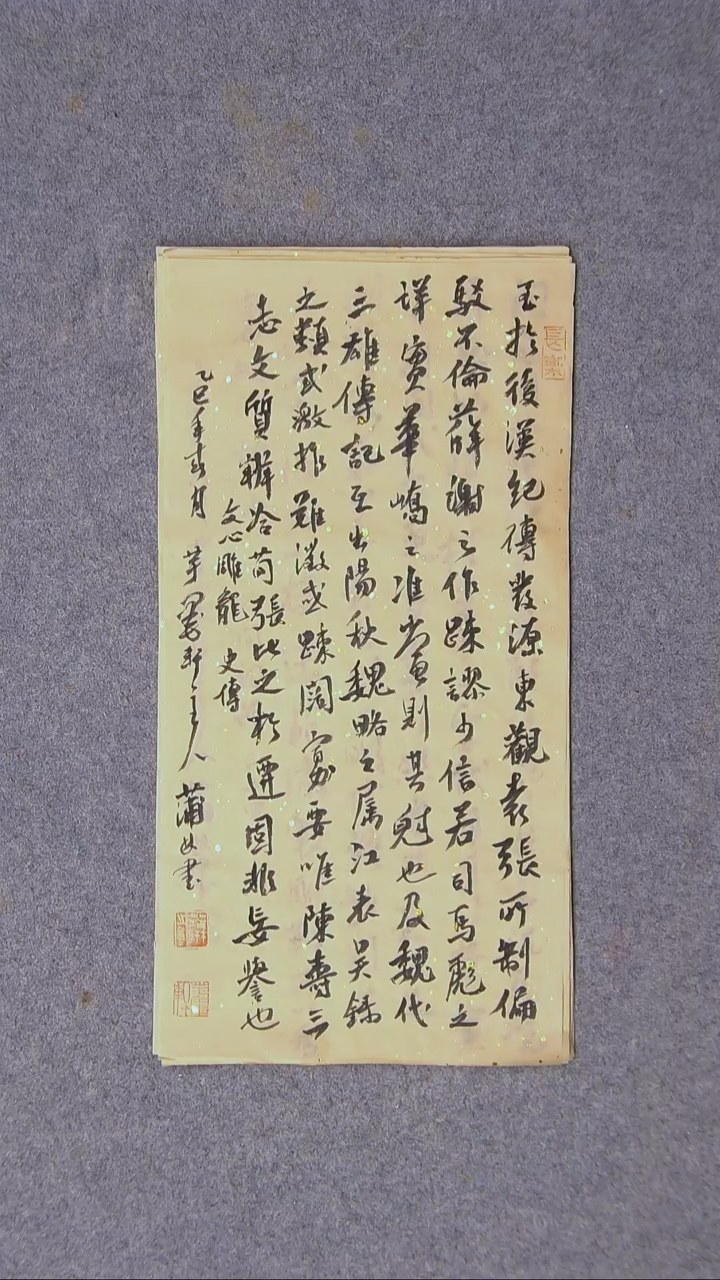 至於後漢紀傳發源東觀袁張所制偏
駁不倫薛謝之作踈謬少信若司馬彪之
詳實華嶠之准當則其魁也及魏代
三雄傳記互出陽秋魏略之屬江表吳錄
之類或激抗難徵或踈闊寡要唯陳壽三
志文質辨洽荀張比之於遷固非妄譽也
文心雕龍 史傳
乙巳年春月 主人 蒲 書
長樂